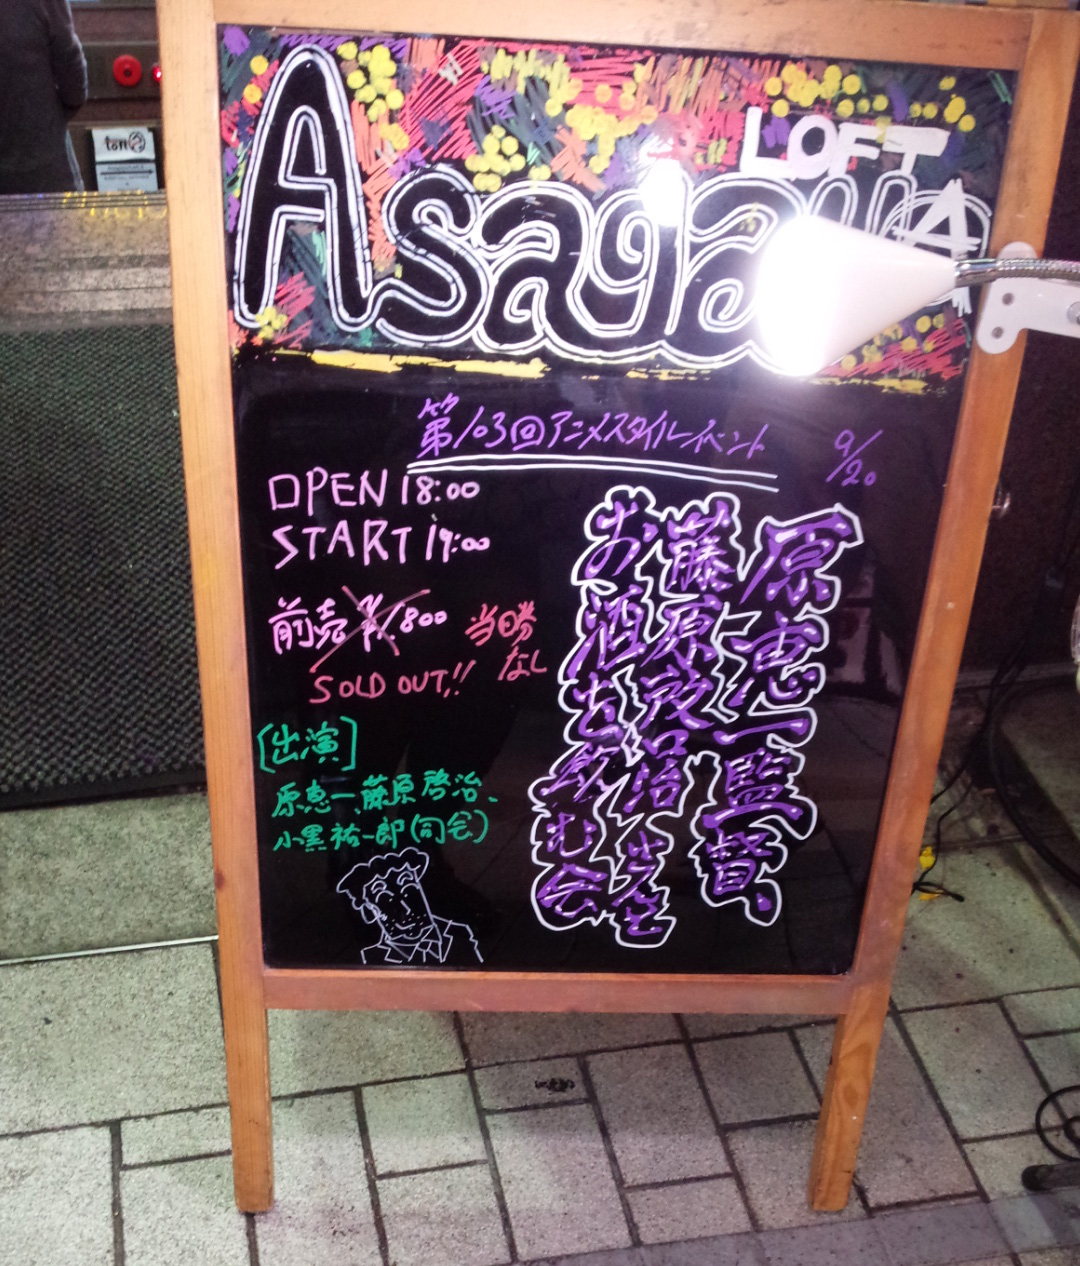 LOFT
Asagaya
第103回アニメスタイルイベント
9/20
OPEN 18:00
START 19:00
前売 ¥1,800
当日券
なし
SOLD OUT!!
[出演]
原恵一、藤原啓治、
小黒祐一郎(司会)
原恵一監督、
藤原啓治さんと
お酒を飲む会